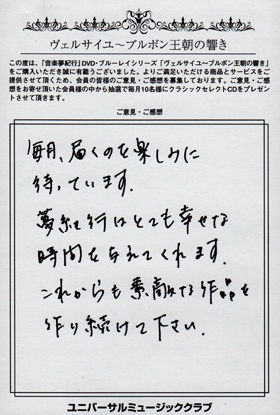 ヴェルサイユ～ブルボン王朝の響き
この度は、「音楽夢紀行」DVD・ブルーレイシリーズ「ヴェルサイユ～ブルボン王朝の響き」
をご購入いただき誠に有難うございました。よりご満足いただける商品とサービスをご
提供させて頂くため、会員の皆様のご意見・ご感想を募集しております。ご意見・ご感
想をお寄せ頂いた会員様の中から抽選で毎月10名様にクラシックセレクトCDをプレゼン
トさせて頂きます。
ご意見・ご感想
毎月、届くのを楽しみに
待っています。
夢紀行はとても幸せな
時間を与えてくれます。
これからも素敵な作品を
作り続けて下さい。
ユニバーサルミュージッククラブ